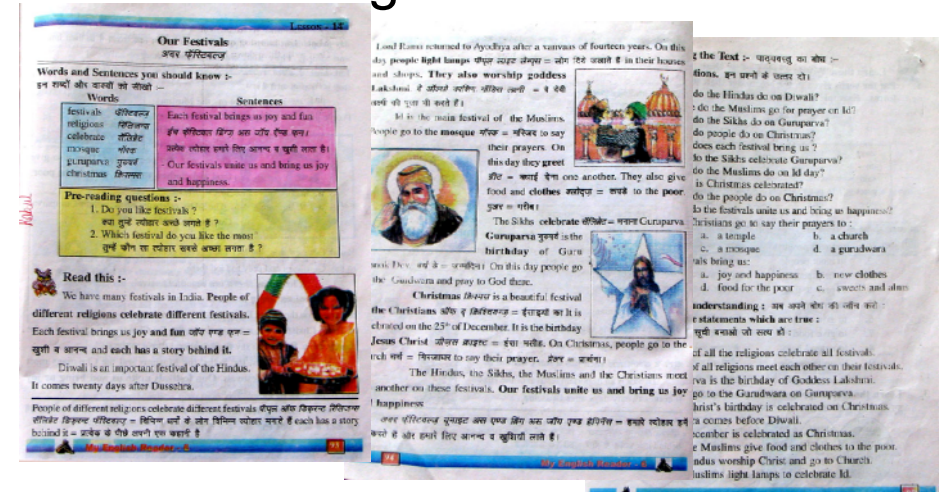 Lesson - 15
Our Festivals
अवर फेस्टिवल्ज़
Words and Sentences you should know :-
इन शब्दों और वाक्यों को सीखो —
Words
festivals फेस्टिवल्ज़
religions रिलिजन्स
celebrate सेलिब्रेट
mosque मॉस्क
guruparva गुरुपर्व
christmas क्रिसमस
Sentences
Each festival brings us joy and fun
ईच फेस्टिवल ब्रिंग्स अस जॉय एण्ड फन।
प्रत्येक त्योहार हमारे लिए आनन्द व खुशी लाता है।
Our festivals unite us and bring us joy
and happiness.
Pre-reading questions :-
1. Do you like festivals ?
क्या तुम्हें त्योहार अच्छे लगते हैं ?
2. Which festival do you like the most
तुम्हें कौन सा त्योहार सबसे अच्छा लगता है ?
Read this :-
We have many festivals in India. People of
different religions celebrate different festivals.
Each festival brings us joy and fun जॉय एण्ड फन =
खुशी व आनन्द and each has a story behind it.
Diwali is an important festival of the Hindus.
It comes twenty days after Dussehra.
People of different religions celebrate different festivals पीपुल ऑफ डिफरन्ट रिलिजन्स
सेलिब्रेट डिफरन्ट फेस्टिवल्ज़ = विभिन्न धर्मों के लोग विभिन्न त्योहार मनाते हैं each has a story
behind it = प्रत्येक के पीछे अपनी एक कहानी है
My English Reader - 5
93
Lord Rama returned to Ayodhya after a vanvas of fourteen years. On this
day people light lamps पीपुल लाइट लैम्पस = लोग दिये जलाते हैं in their houses
and shops. They also worship goddess
Lakshmi
की पूजा भी करते हैं।
Id is the main festival of the Muslims.
People go to the mosque मॉस्क = मस्जिद to say
their prayers. On
this day they greet
ग्रीट = बधाई देना one another. They also give
food and clothes क्लोद्ज़ = कपड़े to the poor
पुअर = गरीब।
The Sikhs celebrate सेलिब्रेट = मनाना Guruparva
Guruparva गुरुपर्व is the
birthday of Guru
Dev. = जन्मदिन। On this day people go
the Gurdwara and pray to God there.
Christmas क्रिसमस is a beautiful festival
the Christians ऑफ द क्रिश्चियन्ज़ = ईसाइयों का It is
ebrated on the 25th of December. It is the birthday
Jesus Christ जीसस क्राइस्ट = ईसा मसीह. On Christmas, people go to the
rch चर्च = गिरजाघर to say their prayer. प्रेयर = प्रार्थना।
The Hindus, the Sikhs, the Muslims and the Christians meet
another on these festivals. Our festivals unite us and bring us joy
happiness
अवर फेस्टिवल्ज़ यूनाइट अस एण्ड ब्रिंग अस जॉय एण्ड हैपिनेस = हमारे त्योहार हमें
करते हैं और हमारे लिए आनन्द व खुशियाँ लाते हैं।
94
My English Reader - 5
g the Text :- पाठ्यवस्तु का बोध :-
tions. इन प्रश्नों के उत्तर दो।
do the Hindus do on Diwali?
do the Muslims go for prayer on Id?
do the Sikhs do on Guruparva?
do people do on Christmas?
does each festival bring us ?
do the Sikhs celebrate Guruparva?
do the Muslims do on Id day?
is Christmas celebrated?
do the people do on Christmas?
do the festivals unite us and bring us happiness?
Christians go to say their prayers to :
a. a temple b. a church
c. a mosque d. a gurudwara
als bring us:
a. joy and happiness b. new clothes
d. food for the poor c. sweets and alms
nderstanding : अब अपने बोध की जाँच करो :
e statements which are true :
सूची बनाओ जो सत्य हों :
of all the religions celebrate all festivals.
of all religions meet each other on their festivals.
rva is the birthday of Goddess Lakshmi.
go to the Gurudwara on Guruparva.
hrist's birthday is celebrated on Christmas.
a comes before Diwali.
ecember is celebrated as Christmas.
e Muslims give food and clothes to the poor.
ndus worship Christ and go to Church.
uslims light lamps to celebrate Id.